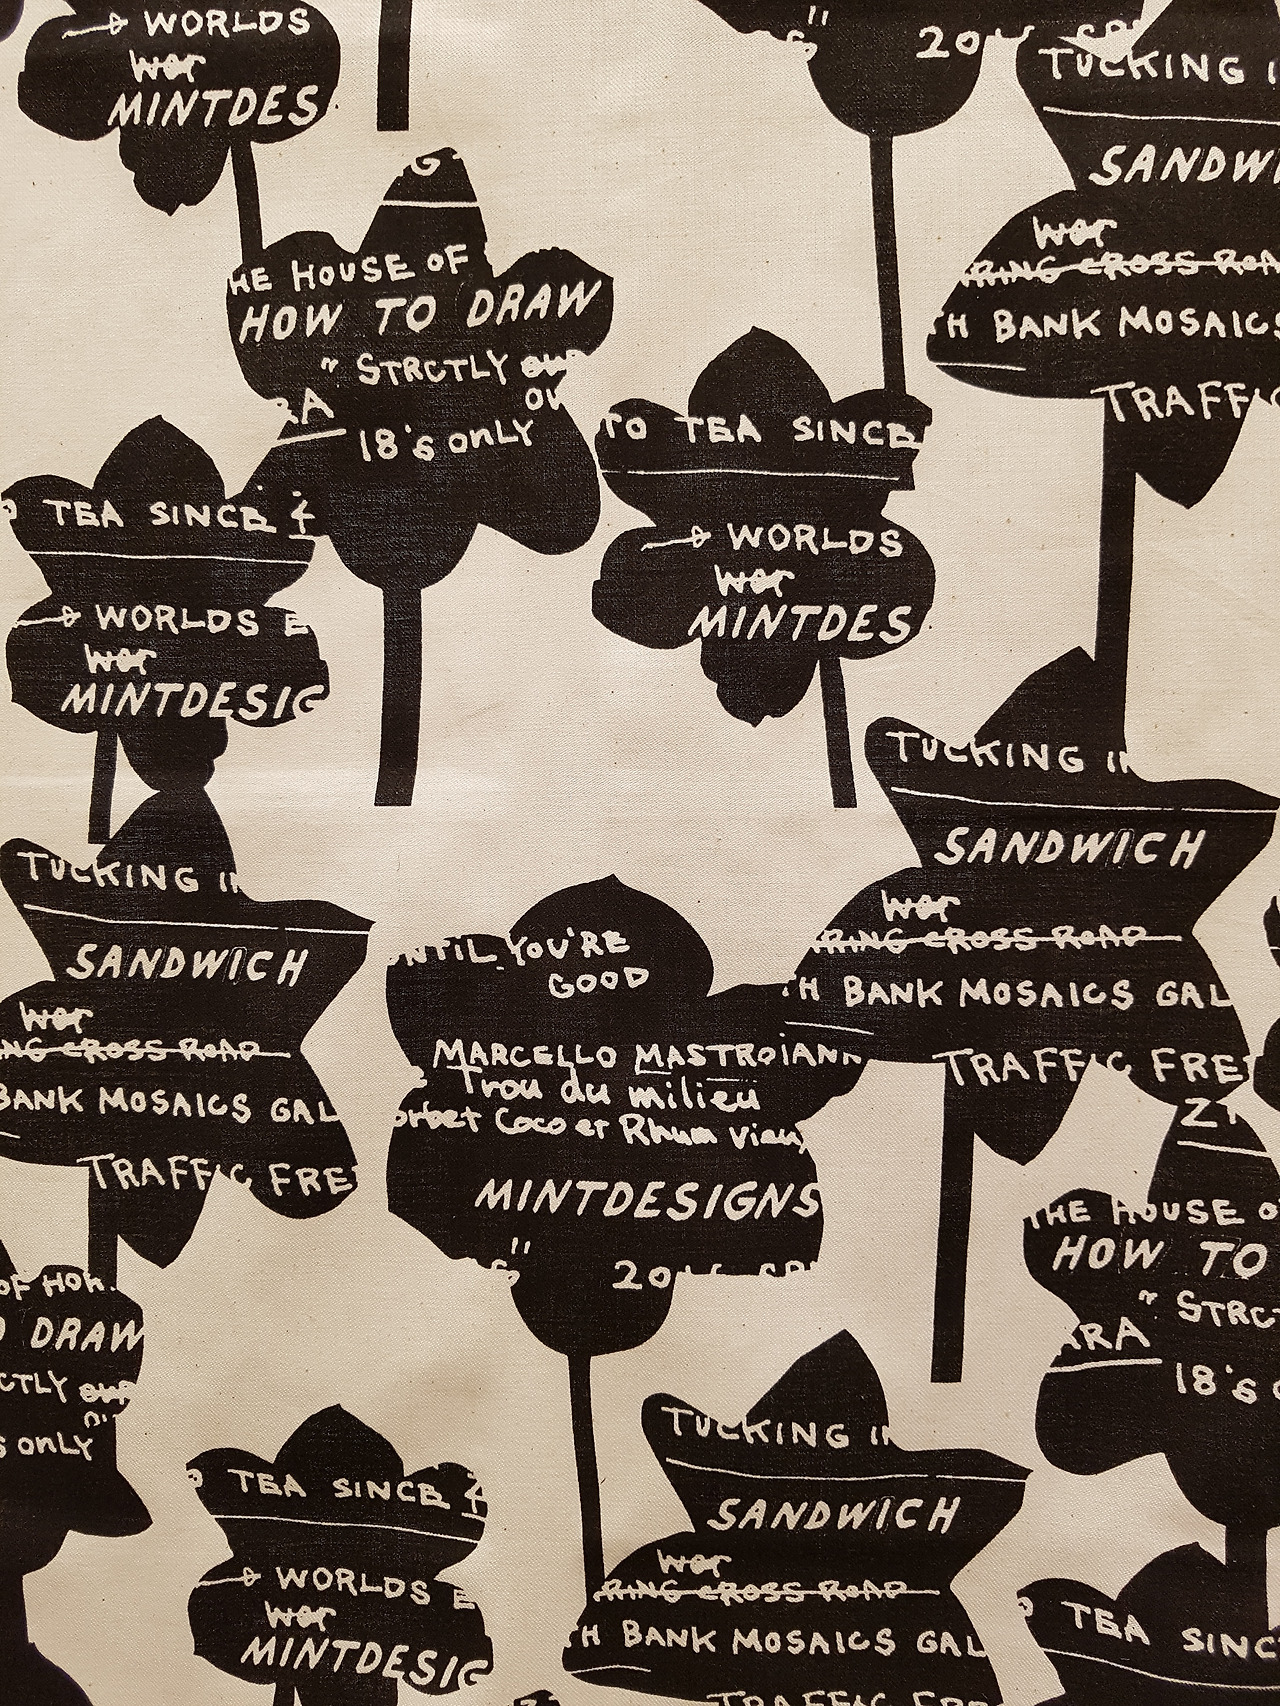 WORLDS
wor
MINTDES
20
TUCKING
SANDWI
wor
RING CROSS ROA
H BANK MOSAICS
TRAFFIC
G
HE HOUSE OF
HOW TO DRAW
" STRCTLY our
RA
18's onLY
TO TEA SINCE
WORLDS
wor
MINTDES
TEA SINCE 4
WORLDS E
wor
MINTDESIG
TUCKING IN
SANDWICH
wor
RING CROSS ROAD
H BANK MOSAICS GAL
TRAFFIC FRE
TUCKING IN
SANDWICH
wor
NG CROSS ROAD
BANK MOSAICS GAL
TRAFFIC FRE
NTIL YOU'RE
GOOD
MARCELLO MASTROIANN
Trou du milieu
orbet Coco et Rhum vieux
MINTDESIGNS
S" 20
THE HOUSE O
HOW TO
" STRCT
ARA
18's
OF HOR
DRAW
CTLY our
s onLY
TEA SINCE 4
WORLDS E
wor
MINTDESIG
TUCKING IN
SANDWICH
wor
RING CROSS ROAD
H BANK MOSAICS GAL
TRAFFIC FRE
TEA SINC